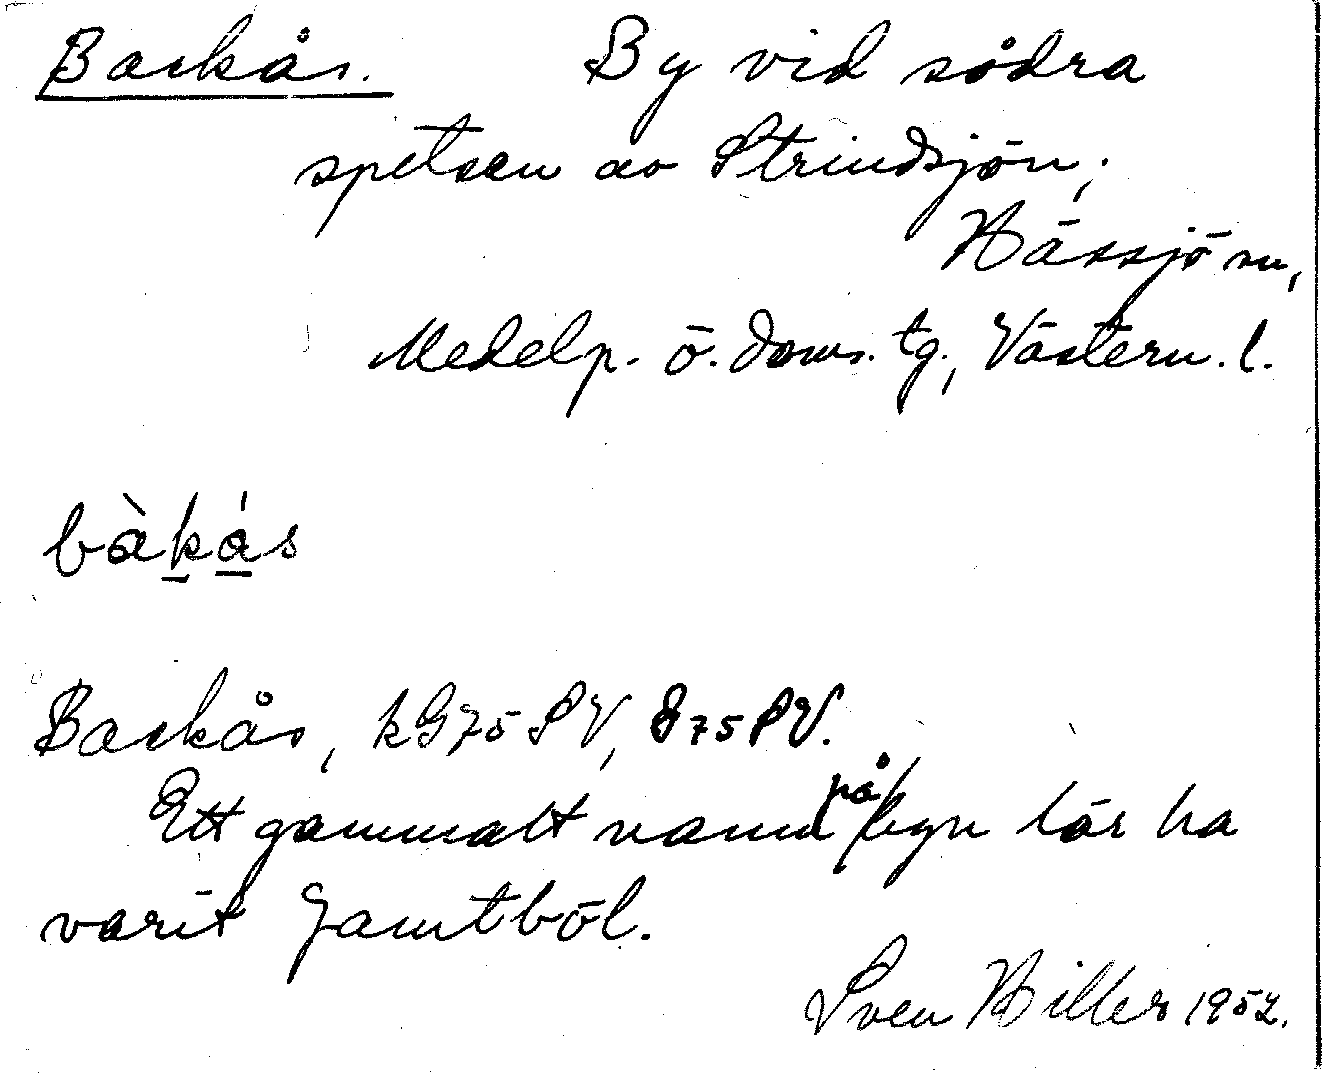 Backås. By vid södra
spetsen av Strindsjön,
Hässjö sn,
Medelp. ö. doms. tg., Västern. l.
bàkás
Backås, kG75SV, J75SV.
Ett gammalt namn på byn lär ha
varit Jamtböl.
Sven Hiller 1952.